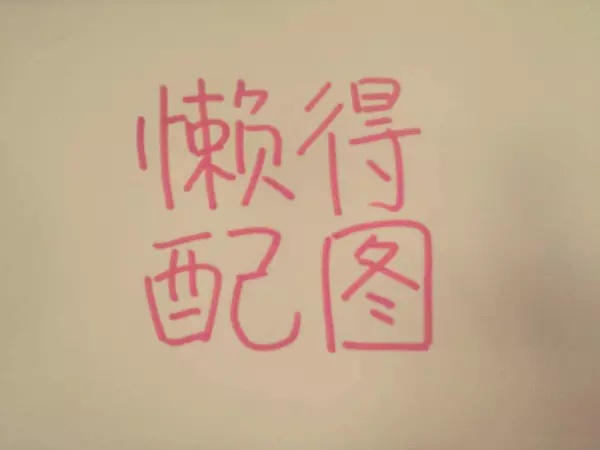 懒得
配图